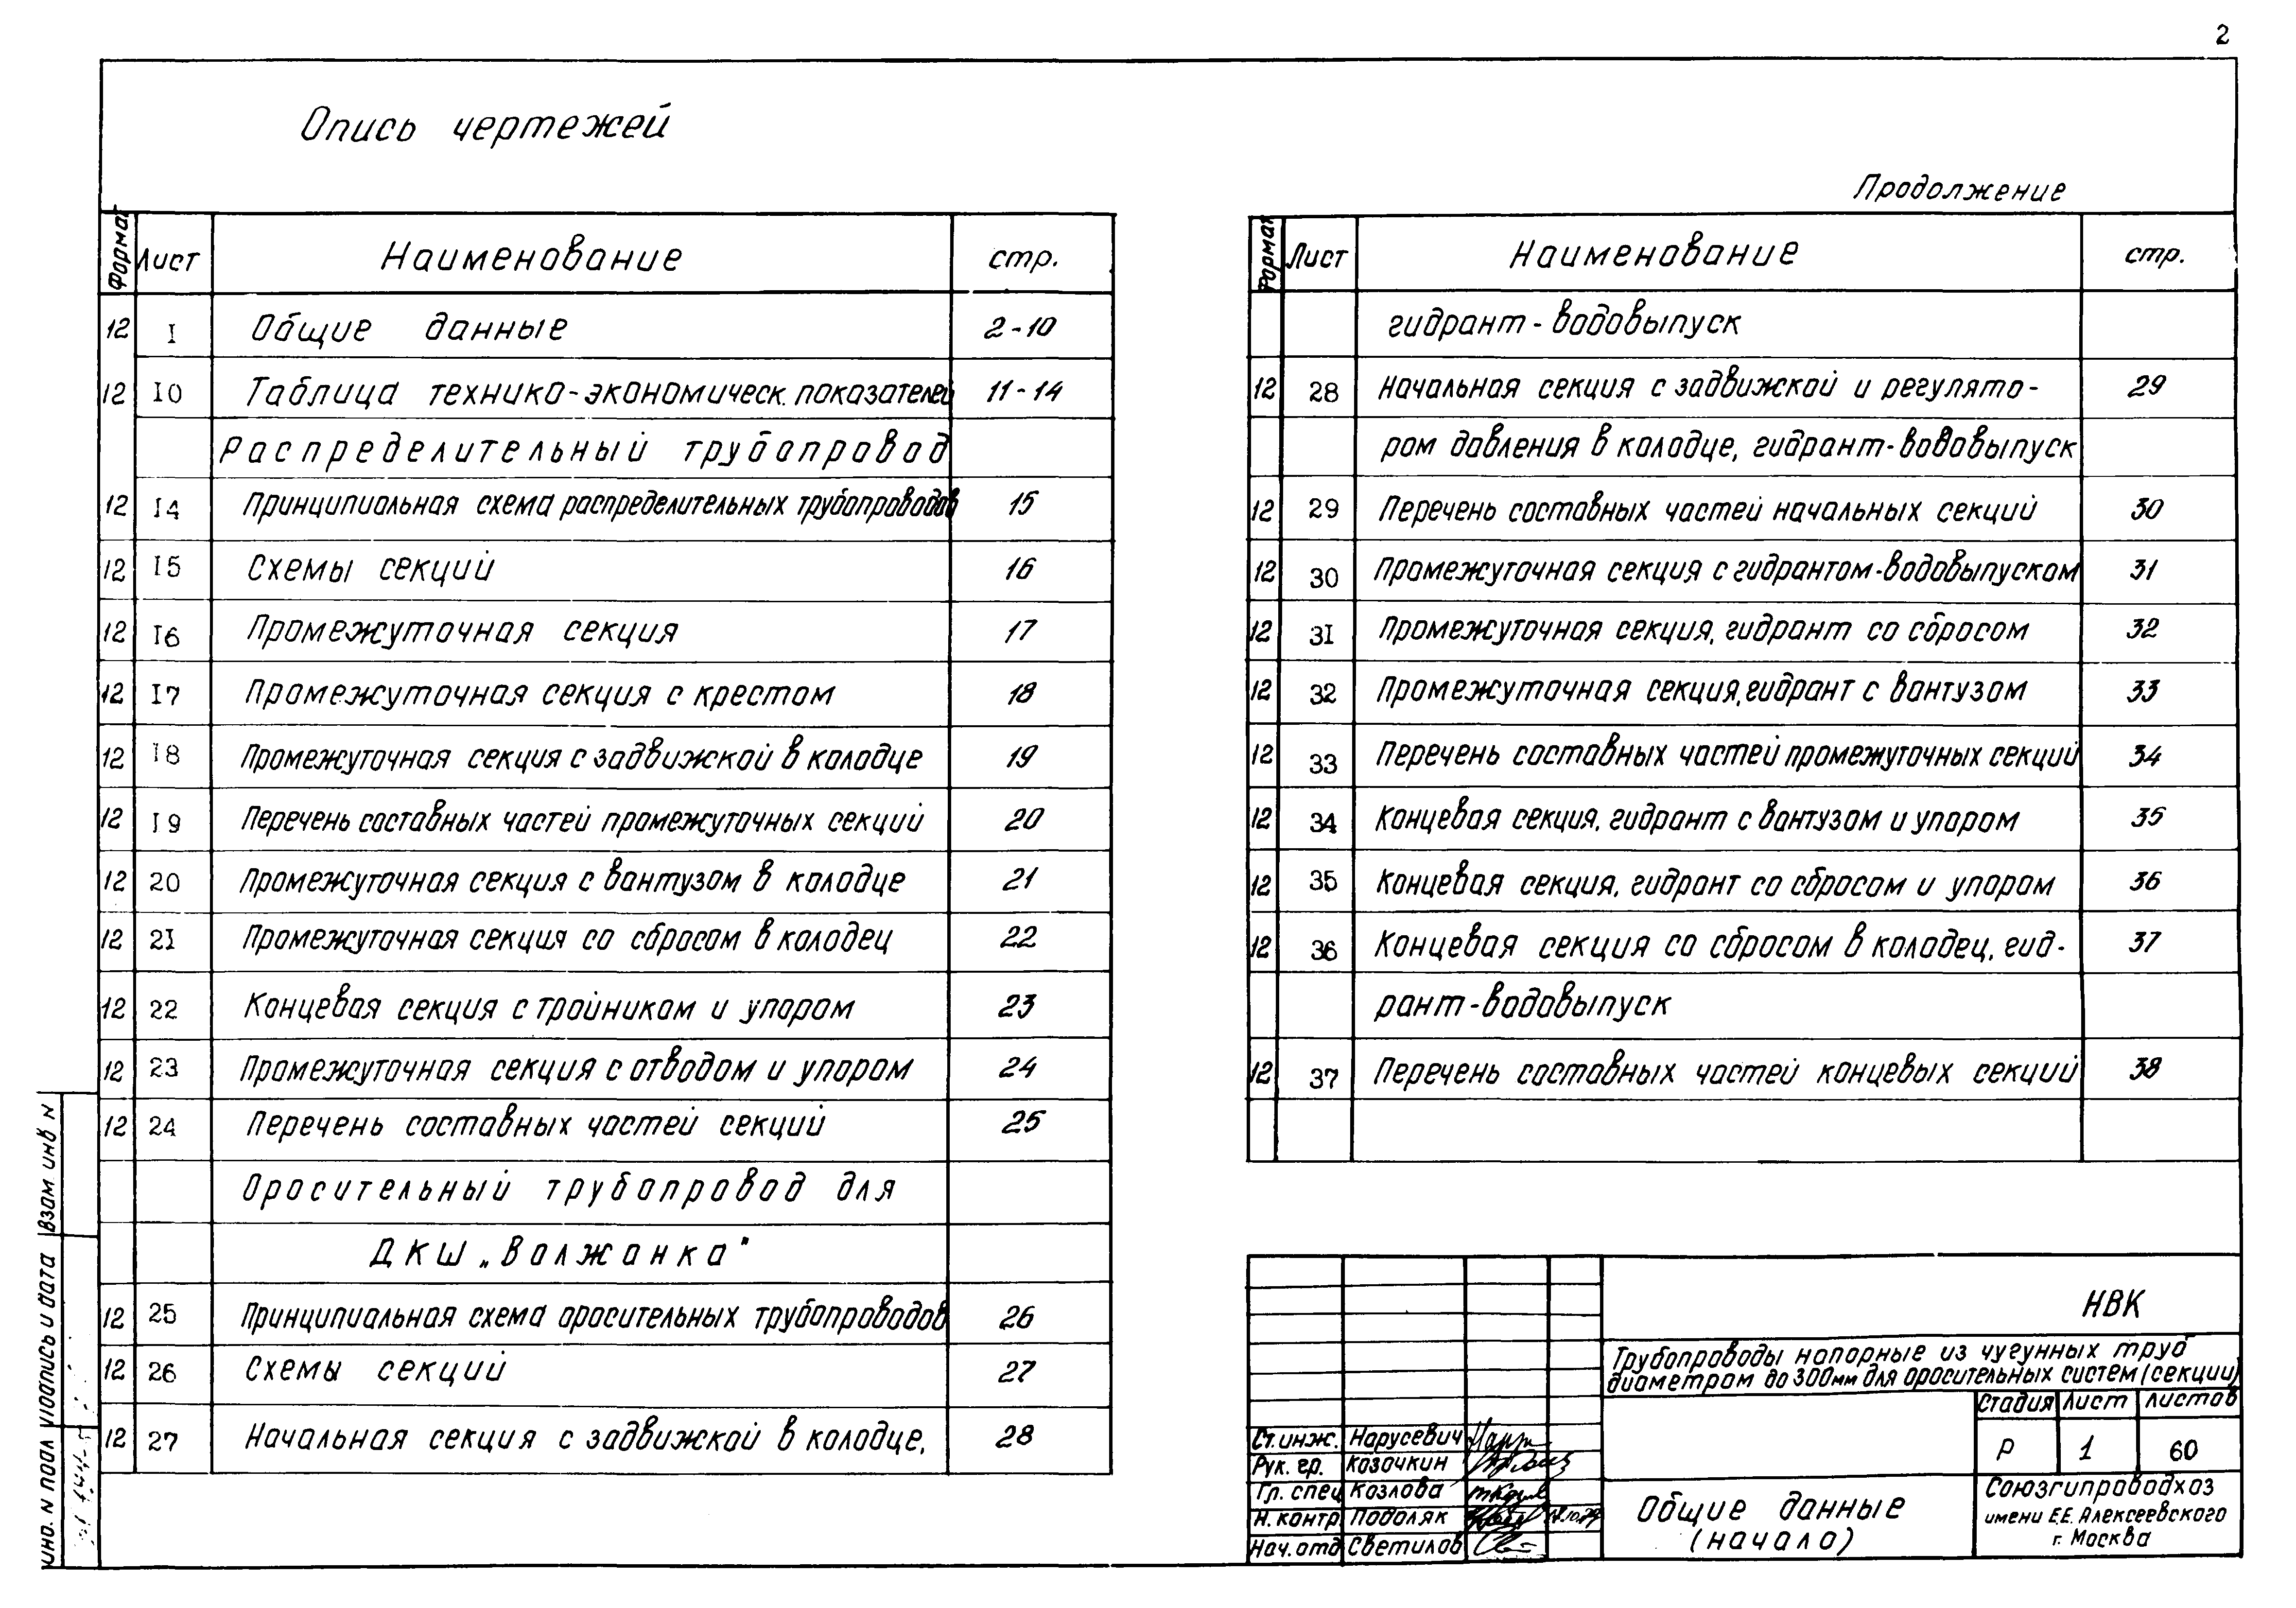 2
Опись чертежей
Формат Лист Наименование стр.
12 1 Общие данные 2-10
12 10 Таблица технико-экономическ. показателей 11-14
Распределительный трубопровод
12 14 Принципиальная схема распределительных трубопроводов 15
12 15 Схемы секций 16
12 16 Промежуточная секция 17
12 17 Промежуточная секция с крестом 18
12 18 Промежуточная секция с задвижкой в колодце 19
12 19 Перечень составных частей промежуточных секций 20
12 20 Промежуточная секция с вантузом в колодце 21
12 21 Промежуточная секция со сбросом в колодец 22
12 22 Концевая секция с тройником и упором 23
12 23 Промежуточная секция с отводом и упором 24
12 24 Перечень составных частей секций 25
Оросительный трубопровод для
ДКШ „Волжанка"
12 25 Принципиальная схема оросительных трубопроводов 26
12 26 Схемы секций 27
12 27 Начальная секция с задвижкой в колодце, 28
Продолжение
Формат Лист Наименование стр.
гидрант-водовыпуск
12 28 Начальная секция с задвижкой и регулято- 29
ром давления в колодце, гидрант-водовыпуск
12 29 Перечень составных частей начальных секций 30
12 30 Промежуточная секция с гидрантом-водовыпуском 31
12 31 Промежуточная секция, гидрант со сбросом 32
12 32 Промежуточная секция, гидрант с вантузом 33
12 33 Перечень составных частей промежуточных секций 34
12 34 Концевая секция, гидрант с вантузом и упором 35
12 35 Концевая секция, гидрант со сбросом и упором 36
12 36 Концевая секция со сбросом в колодец, гид- 37
рант-водовыпуск
12 37 Перечень составных частей концевых секций 38
НВК
Трубопроводы напорные из чугунных труб
диаметром до 300мм для оросительных систем (секции)
Стадия Лист Листов
Р 1 60
Ст. инж. Нарусевич
Рук. гр. Козочкин
Гл. спец Козлова
Н. контр Подоляк
Нач. отд Светилов
Общие данные
(начало)
Союзгипроводхоз
имени Е.Е. Алексеевского
г. Москва
Инв. N подл Подпись и дата Взам инв N